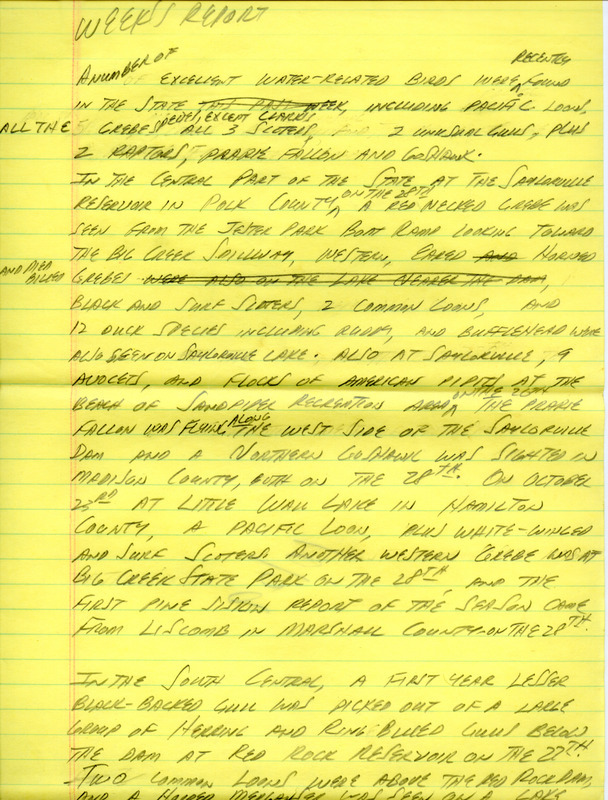 WEEK'S REPORT
A NUMBER OF EXCELLENT WATER-RELATED BIRDS WERE RECENTLY FOUND
IN THE STATE THIS PAST WEEK, INCLUDING PACIFIC LOON,
ALL THE GREBE SPECIES, EXCEPT CLARKS ALL 3 SCOTERS, 2 UNUSUAL GULLS, PLUS
2 RAPTORS, PRARIE FALLON AND GOSHAWK.
IN THE CENTRAL PART OF THE STATE AT THE SAYLORVILLE
RESERVOIR IN POLK COUNTY, ON THE 28TH A RED NECKED GREBE WAS
SEEN FROM THE JESTER PARK BOAT RAMP LOOKING TOWARD
THE BIG CREEK SPILLWAY, WESTERN, EARED AND HORNED
AND PIED BILLED GREBES WERE ALSO ON THE LAKE NEARER THE DAM,
BLACK AND SURF SCOTERS, 2 COMMON LOONS, AND
12 DUCK SPECIES INCLUDING RUDDY, AND BUFFLEHEAD WERE
ALSO SEEN ON SAYLORVILLE LAKE. ALSO AT SAYLORVILLE, 9
AVOCETS, AND FLOCKS OF AMERICAN PIPITS AT THE
BEACH OF SANDPIPER RECREATION AREA ON THE 26TH. THE PRARIE
FALLON WAS FLYING ALONG THE WEST SIDE OF THE SAYLORVILLE
DAM AND A NORTHERN GOSHAWK WAS SIGHTED IN
MADISON COUNTY, BOTH ON THE 28TH. ON OCTOBER
23RD AT LITTLE WALL LAKE IN HAMILTON
COUNTY, A PACIFIC LOON, PLUS WHITE-WINGED
AND SURF SCOTERS. ANOTHER WESTERN GREBE WAS AT
BIG CREEK STATE PARK ON THE 28TH, AND THE
FIRST PINE SISKIN REPORT OF THE SEASON CAME
FROM LISCOMB IN MARSHALL COUNTY-ON THE 28TH.
IN THE SOUTH CENTRAL, A FIRST YEAR LESSER
BLACK-BACKED GULL WAS PICKED OUT OF A LARGE
GROUP OF HERRING AND RING BILLED GULLS BELOW
THE DAM AT RED ROCK RESERVOIR ON THE 28TH.
TWO COMMON LOONS WERE ABOVE THE RED ROCK DAM,
AND A HOODED MERGANSER WAS SEEN ON A LAKE